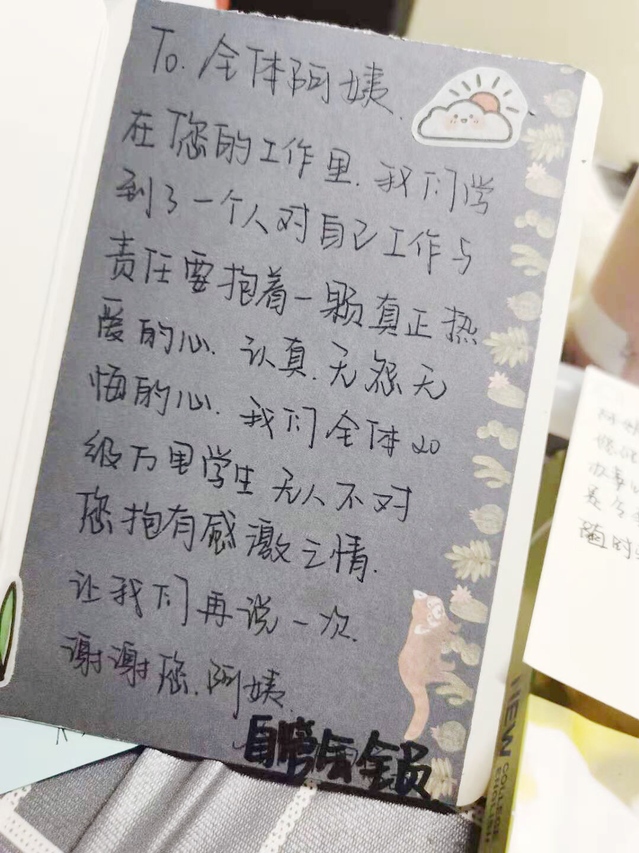 To. 全体阿姨.
在您的工作里.我们学
到了一个人对自己工作与
责任要抱着一颗真正热
爱的心.认真.无怨无
悔的心.我们全体20
级万里学生无人不对
您抱有感激之情.
让我们再说一次.
谢谢您.阿姨.
自管会全员
NEW
COLLEGE
ENGLISH